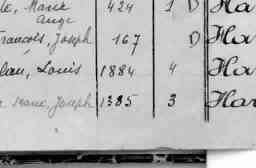 Marie 424 1 D Ha
Ange
François, Joseph 167 D Ha
Louis 1884 4 Ha
Joseph 1385 3 Har